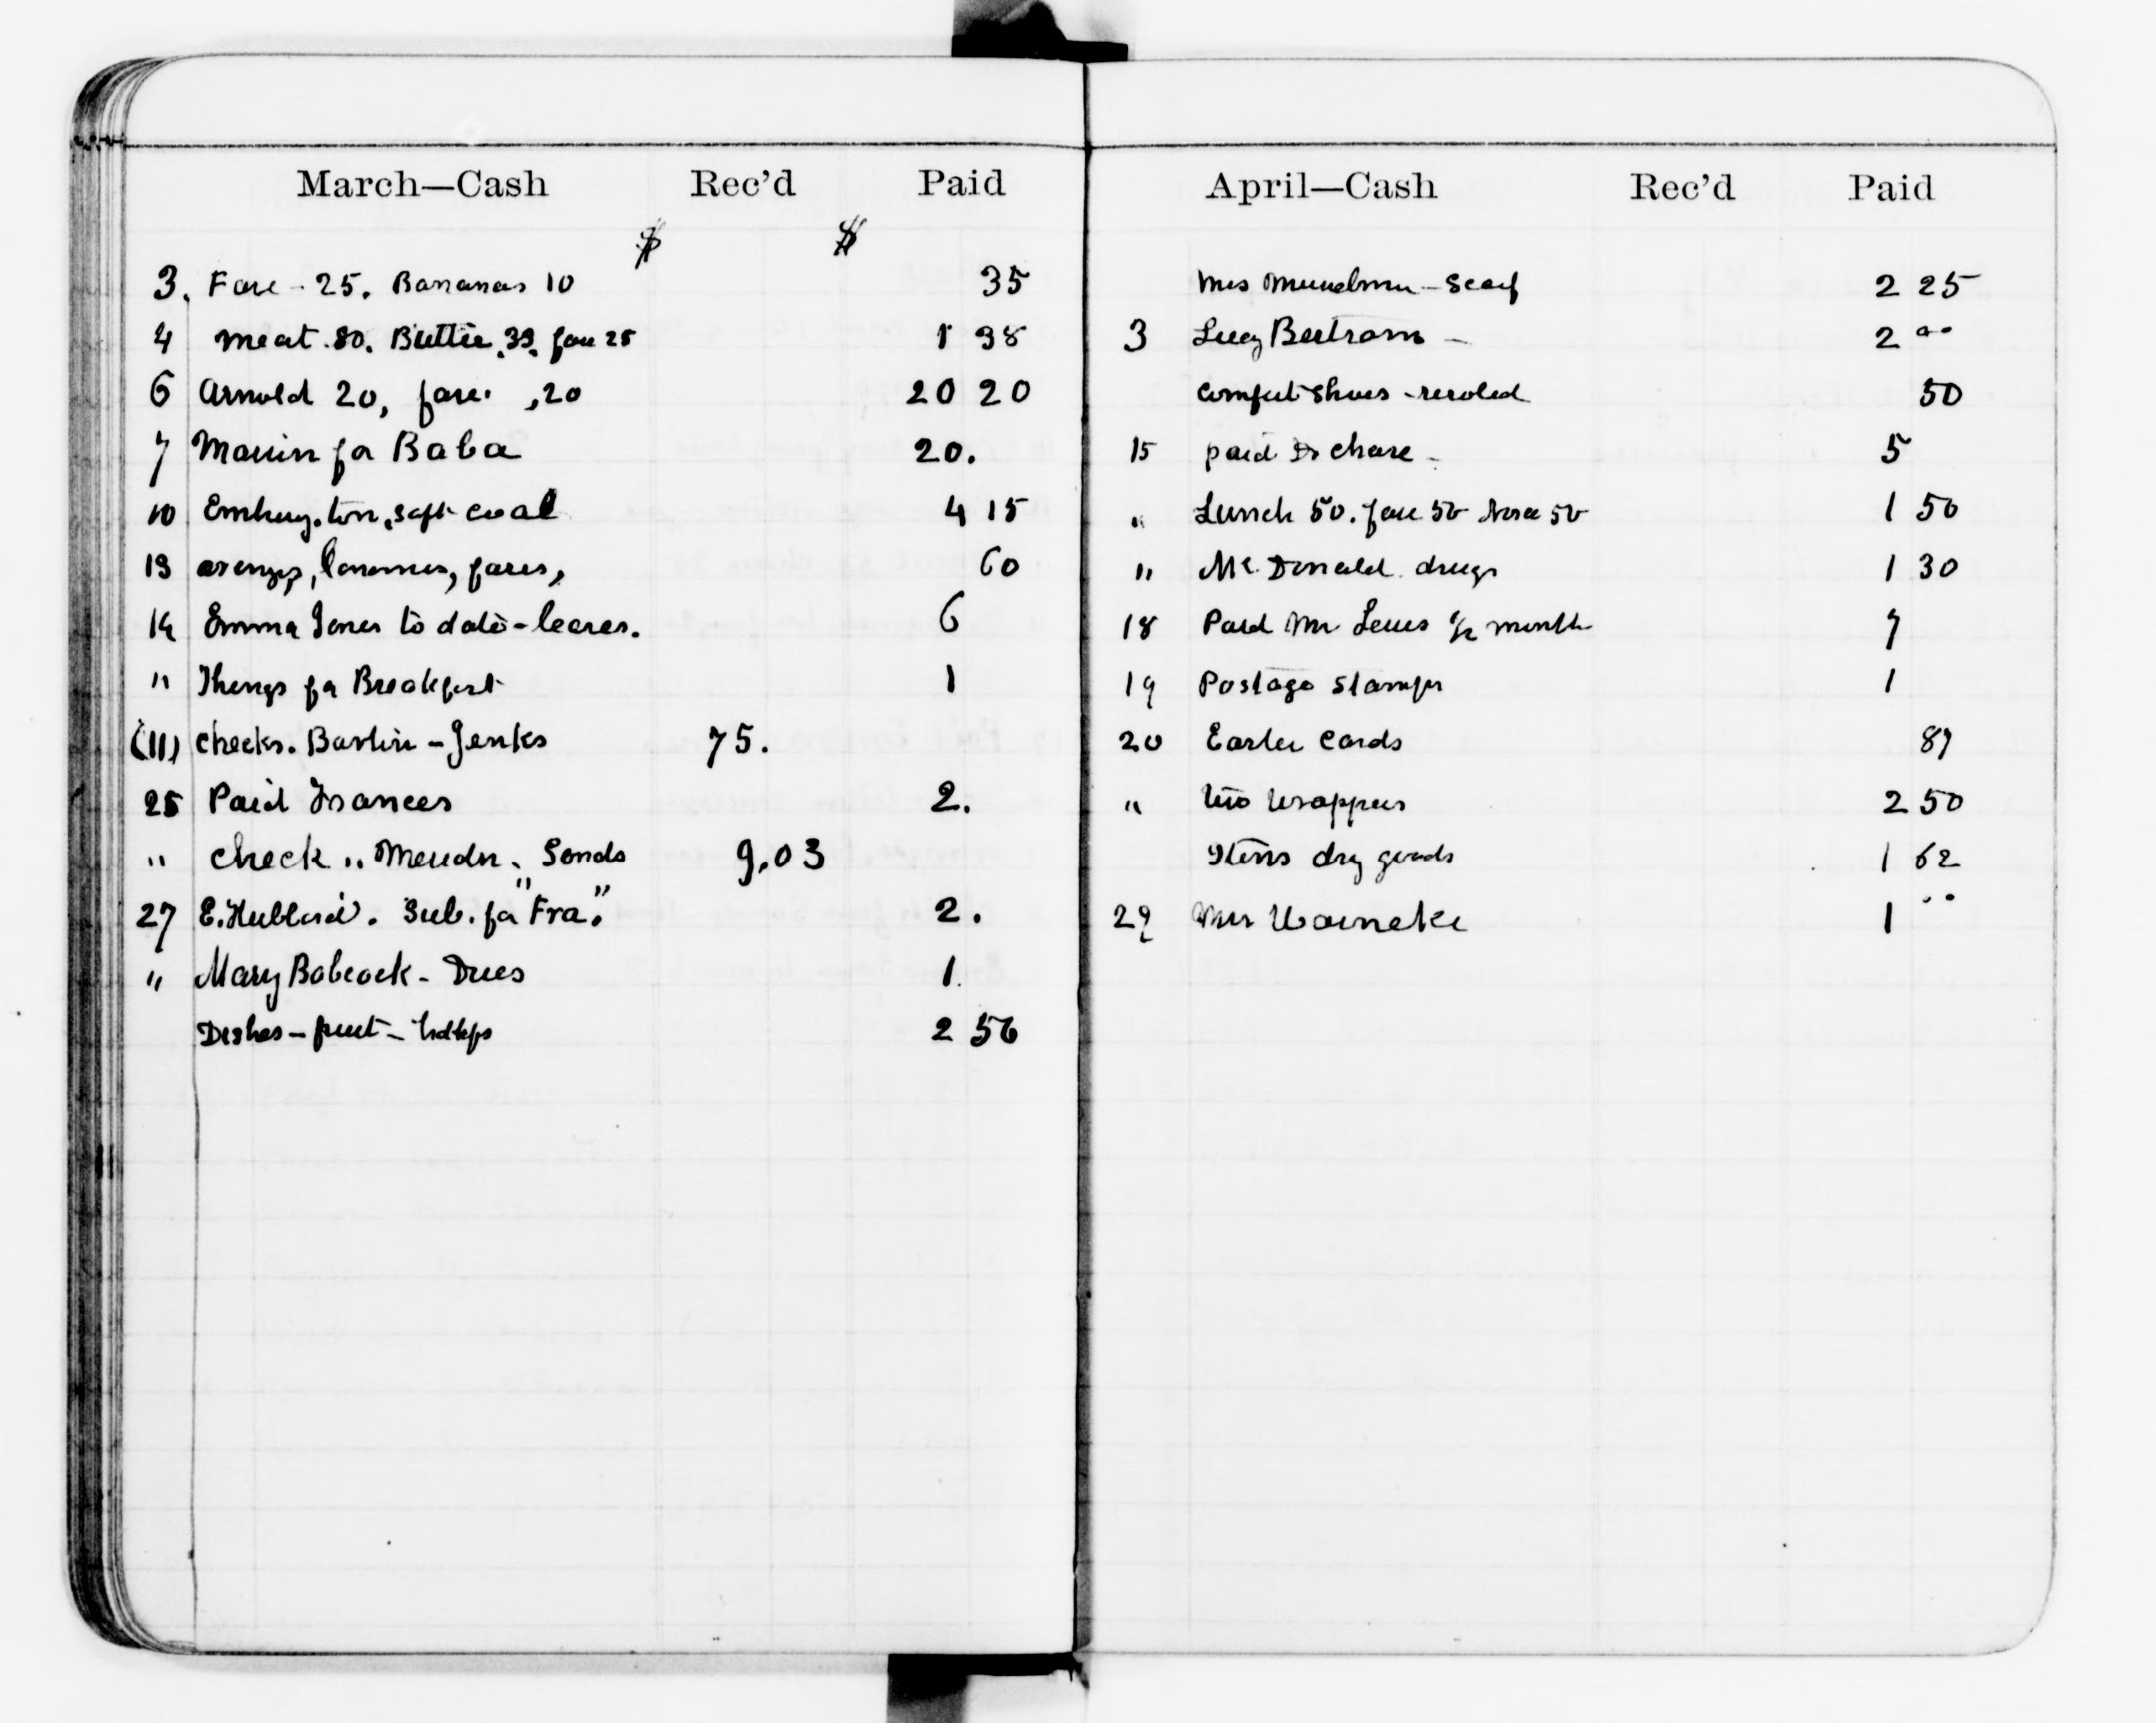 March—Cash Rec'd Paid
$ $
3. Fare - 25. Bananas 10 35
4 Meat .80. Butter .33. fare 25 1 38
6 Arnold 20, fare. ,20 20 20
7 for Baba 20.
10 ton, soft coal 4 15
13 oranges, bananas, fares, 60
14 Emma Jones to date - 6
" Things for Breakfast 1
(11) checks. Bartlin - Jenks 75.
25 Paid Frances 2.
" check " Sands 9,03
27 E. Hubbard. Sub. for "Fra". 2.
" Mary Babcock - Dues 1.
Dishes - fruit - 2 56
April—Cash Rec'd Paid
Mrs - Scarf 2 25
3 Lucy Bertram - 2 00
Comfort shoes - resoled 50
15 paid Dr Chase - 5
" Lunch 50. fare 50 Nora 50 1 50
" Mc Donald drugs 1 30
18 Paid Mr Lewis 1/2 month 7
19 Postage Stamps 1
20 Easter Cards 89
" two wrappers 2 50
Items dry goods 1 62
29 Mrs Warneke 1 "